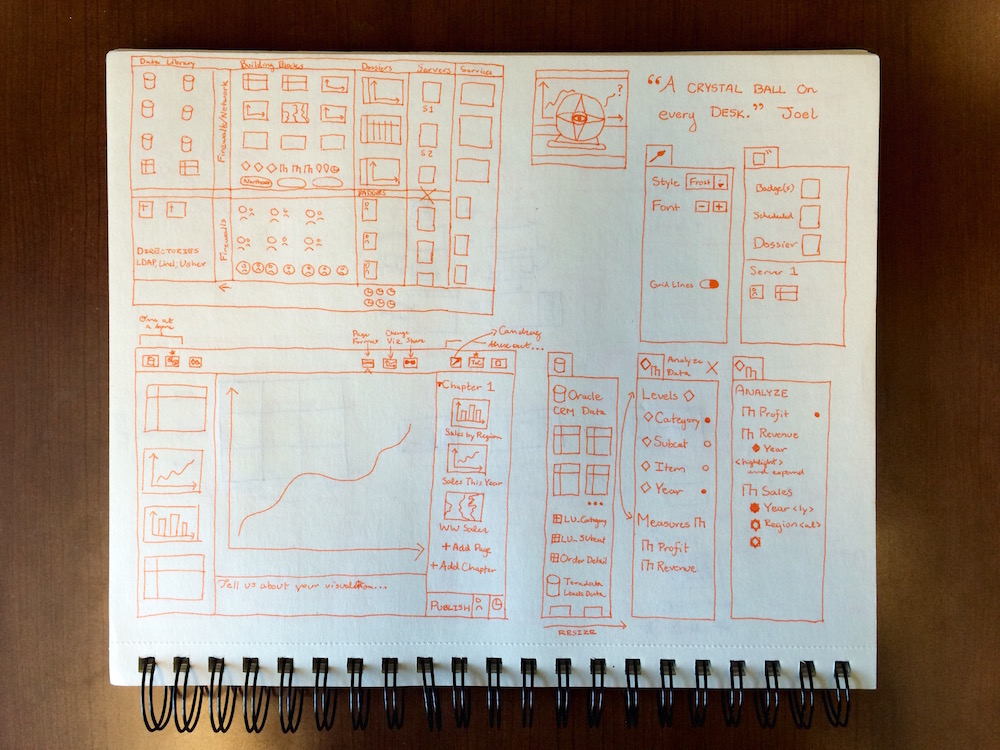 Data Library
Building Blocks
Dossiers
Servers
Services
Firewalls/Network
S1
S2
Northeast
Firewalls
DIRECTORIES
LDAP, Lincl, Usher
?
"A CRYSTAL BALL On
every DESK." Joel
Style Frost
Font - +
Grid Lines
Badge(s)
Scheduled
Dossier
Server 1
One at
a time
Page
Format
Change
Viz
Share
Can drag
these out...
Chapter 1
Sales by Region
Sales This Year
WW Sales
+ Add Page
+ Add Chapter
Tell us about your visualization...
PUBLISH
Oracle
CRM Data
...
LU_Category
LU_Subcat
Order Detail
Teradata
Leads Data
RESIZE
Analyze
Data
X
Levels
Category
Subcat
Item
Year
Measures
Profit
Revenue
ANALYZE
Profit
Revenue
Year
<highlight>
and expand
Sales
Year <ly>
Region <al>